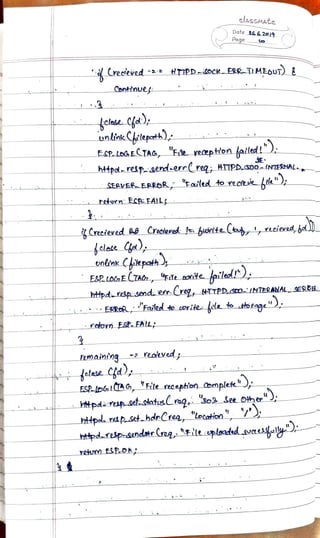 classmate
Date 26.6.2019
Page 10
if (recieved == HTTPD_SOCK_ERR_TIMEOUT) {
Continue;
}
fclose (fd);
unlink (filepath);
ESP_LOGE (TAG, "File reception failed!");
httpd_resp_send_err (req, HTTPD_500_INTERNAL_
SERVER_ERROR, "Failed to recieve file");
return ESP_FAIL;
}
if (recieved && (recieved != fwrite (buf, 1, recieved, fd))) {
fclose (fd);
unlink (filepath);
ESP_LOGE (TAG, "File write failed!");
httpd_resp_send_err (req, HTTPD_500_INTERANAL_SERVER
ERROR, "Failed to write file to storage");
return ESP_FAIL;
}
remaining -= recieved;
fclose (fd);
ESP_LOGI (TAG, "File reception complete");
httpd_resp_set_status (req, "303 See Other");
httpd_resp_set_hdr (req, "Location", "/");
httpd_resp_sendstr (req, "File uploaded successfully");
return ESP_OK;
}